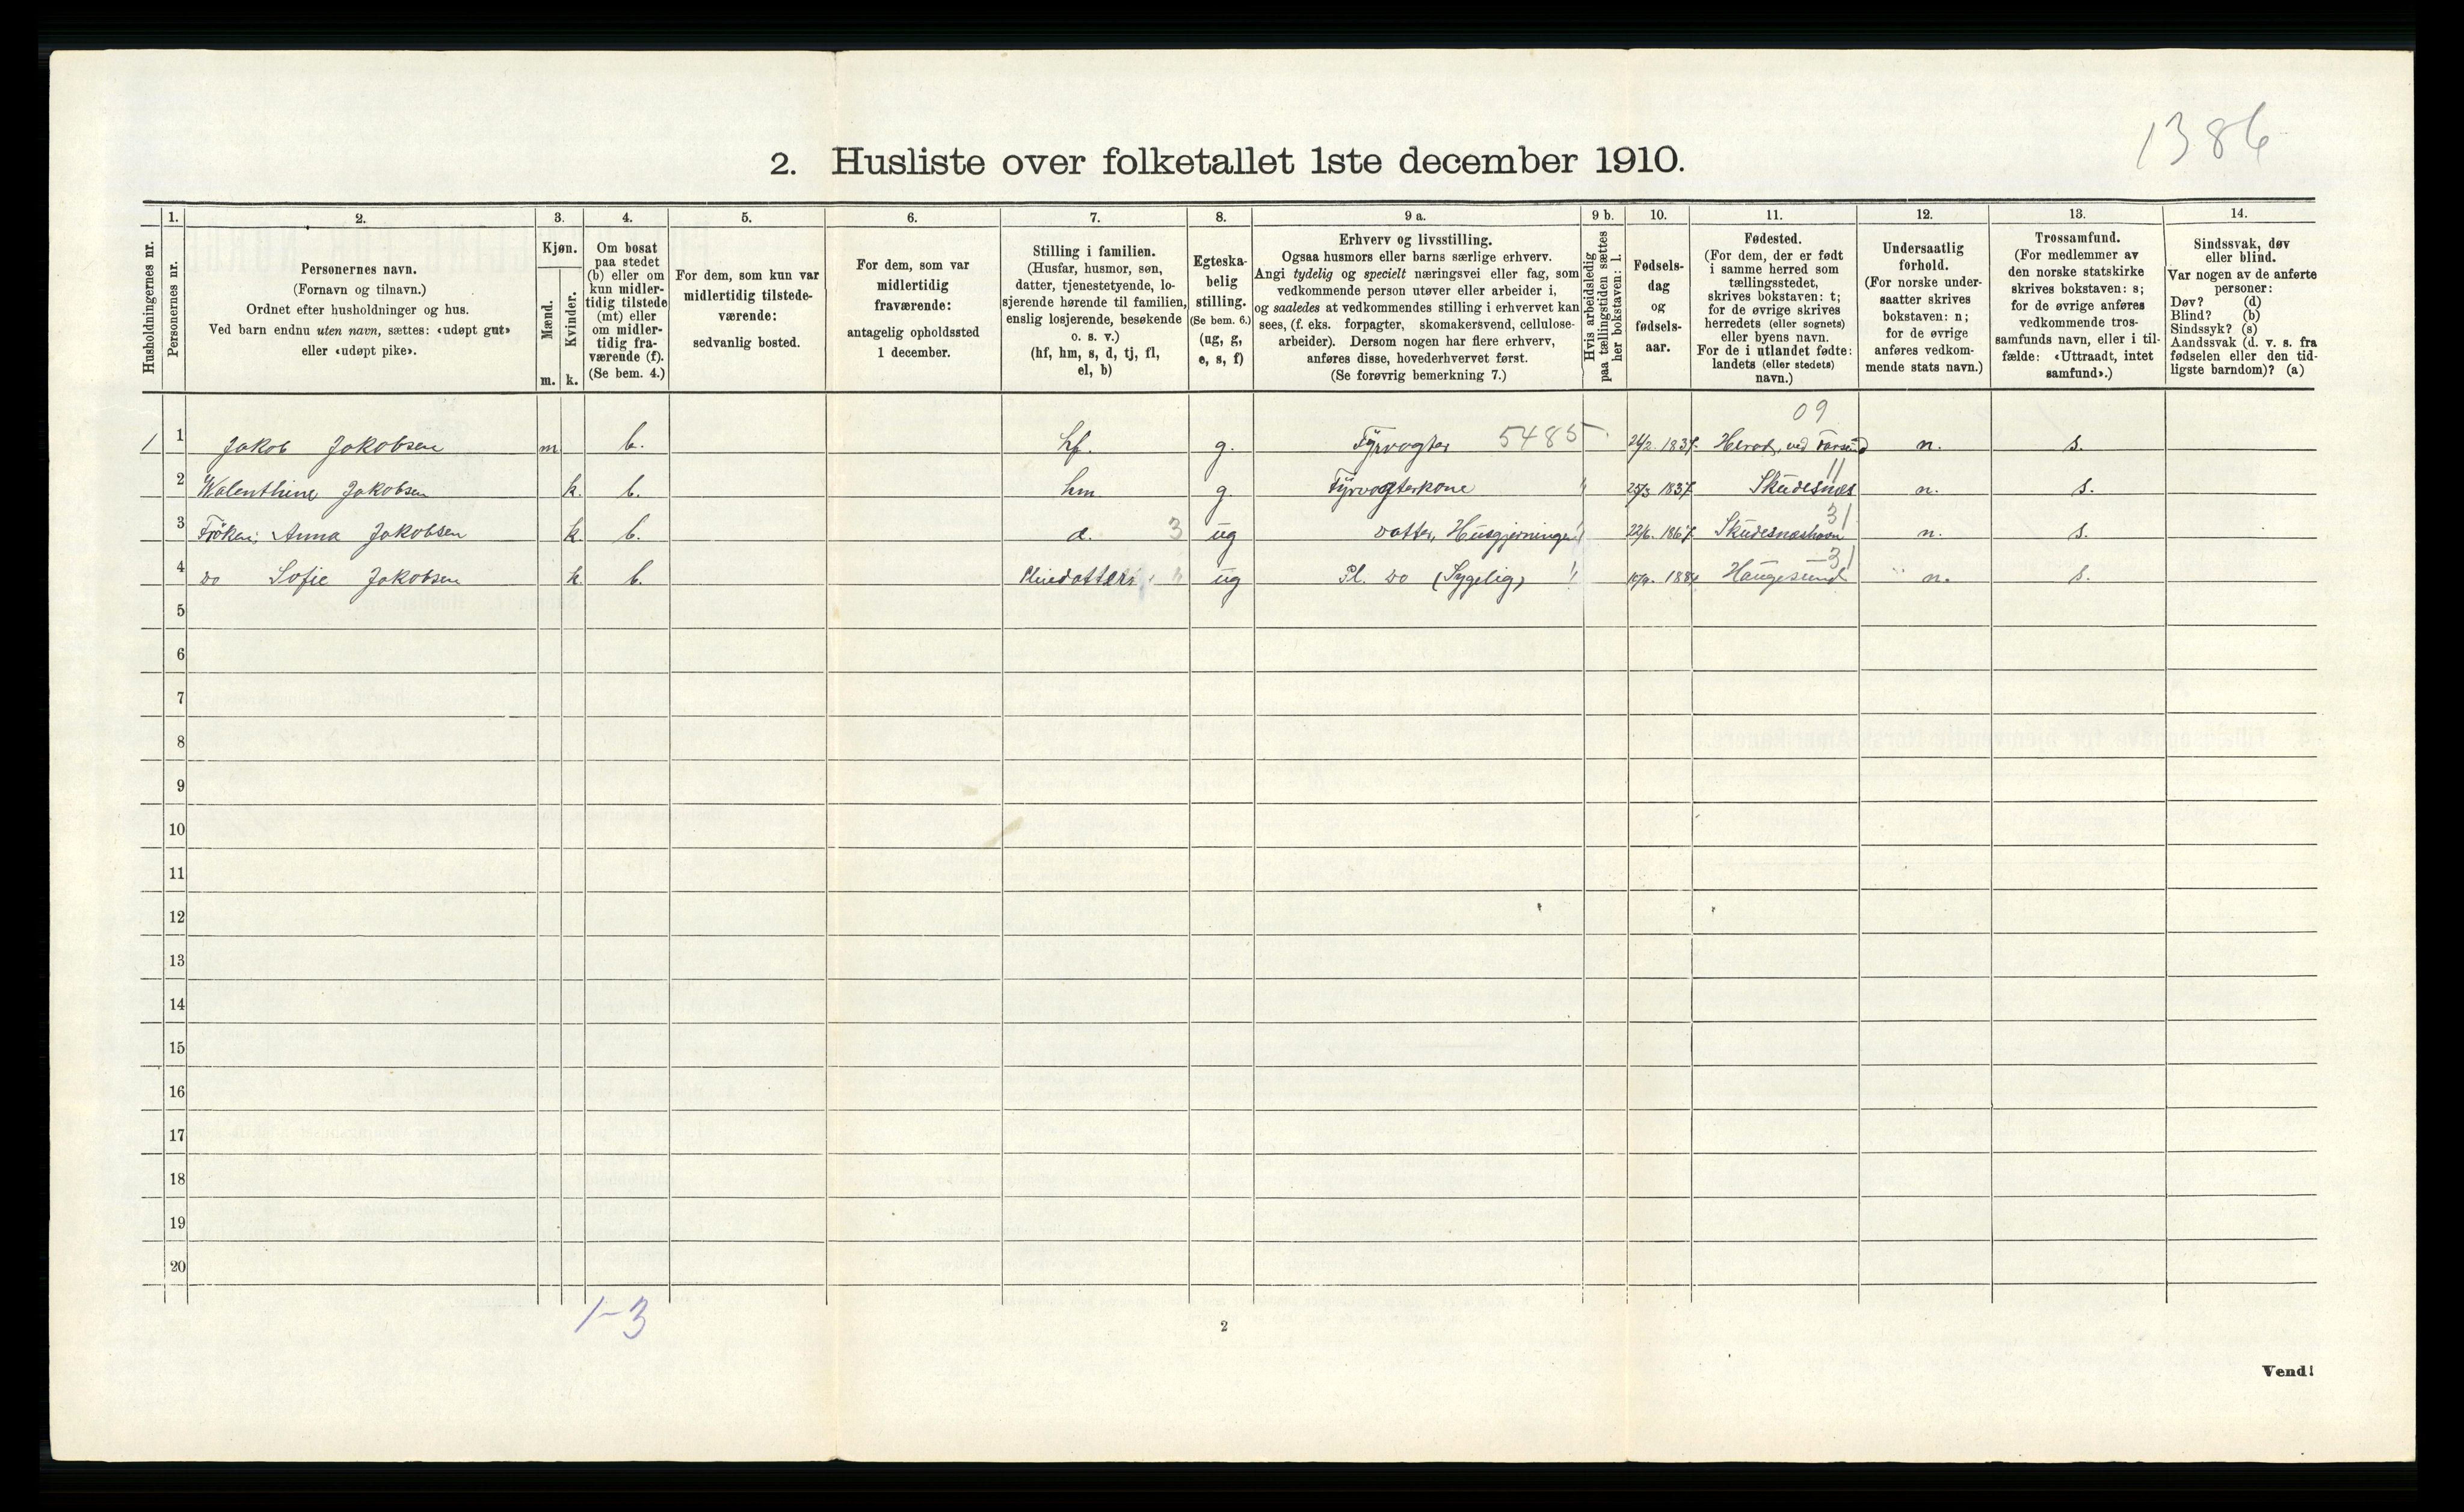 1386
2. Husliste over folketallet 1ste december 1910.
Husholdningernes nr.
1. Personernes nr.
2. Personernes navn. (Fornavn og tilnavn.) Ordnet efter husholdninger og hus. Ved barn endnu uten navn, sættes: «udøpt gut» eller «udøpt pike».
3. Kjøn. Mænd. m. Kvinder. k.
4. Om bosat paa stedet (b) eller om kun midler- tidig tilstede (mt) eller om midler- tidig fra- værende (f). (Se bem. 4.)
5. For dem, som kun var midlertidig tilstede- værende: sedvanlig bosted.
6. For dem, som var midlertidig fraværende: antagelig opholdssted 1 december.
7. Stilling i familien. (Husfar, husmor, søn, datter, tjenestetyende, lo- sjerende hørende til familien, enslig losjerende, besøkende o. s. v.) (hf, hm, s, d, tj, fl, el, b)
8. Egteska- belig stilling. (Se bem. 6.) (ug, g, e, s, f)
9 a. Erhverv og livsstilling. Ogsaa husmors eller barns særlige erhverv. Angi tydelig og specielt næringsvei eller fag, som vedkommende person utøver eller arbeider i, og saaledes at vedkommendes stilling i erhvervet kan sees, (f. eks. forpagter, skomakersvend, cellulose- arbeider). Dersom nogen har flere erhverv, anføres disse, hovederhvervet først. (Se forøvrig bemerkning 7.)
9 b. Hvis arbeidsledig paa tællingstiden sættes her bokstaven: l.
10. Fødsels- dag og fødsels- aar.
11. Fødested. (For dem, der er født i samme herred som tællingsstedet, skrives bokstaven: t; for de øvrige skrives herredets (eller sognets) eller byens navn. For de i utlandet fødte: landets (eller stedets) navn.)
12. Undersaatlig forhold. (For norske under- saatter skrives bokstaven: n; for de øvrige anføres vedkom- mende stats navn.)
13. Trossamfund. (For medlemmer av den norske statskirke skrives bokstaven: s; for de øvrige anføres vedkommende tros- samfunds navn, eller i til- fælde: «Uttraadt, intet samfund».)
14. Sindssvak, døv eller blind. Var nogen av de anførte personer: Døv? (d) Blind? (b) Sindssyk? (s) Aandssvak (d. v. s. fra fødselen eller den tid- ligste barndom)? (a)
09
1 1 Jakob Jakobsen m b. hf. g. Fyrvogter 5485 1837 ved Farsund n. s.
11
2 Walenthine Jakobsen k. b. hm g. Fyrvogterkone " 25/3 1837 Skudesnæs n. s.
31
3 Frøken Anna Jakobsen k. b. d. 3 ug Datter, Husgjerninger " 22/6. 1867 Skudesnæshavn n. s.
31
4 Do Sofie Jakobsen k. b. Pleiedatter " ug Pl. Do (Sygelig) " Haugesund n. s.
5
6
7
8
9
10
11
12
13
14
15
16
17
18
19
20
1-3
2
Vend!